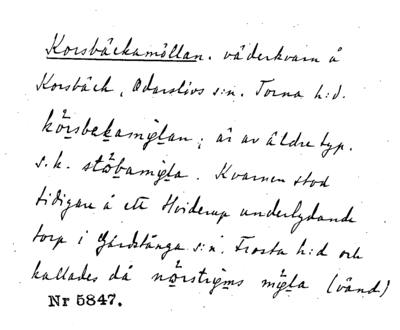 Korsbäckamöllan. väderkvarn å
Korsbäck, Odarslövs s:n. Torna h:d.
kö̀rsbekamỳlan; är av äldre typ.
s.k. stöbamỳla. Kvarnen stod
tidigare å ett Hviderup underlydande
torp i Gårdstånga s:n. Frosta h:d och
kallades då nö̀rstigms mỳla (vänd)
Nr 5847.